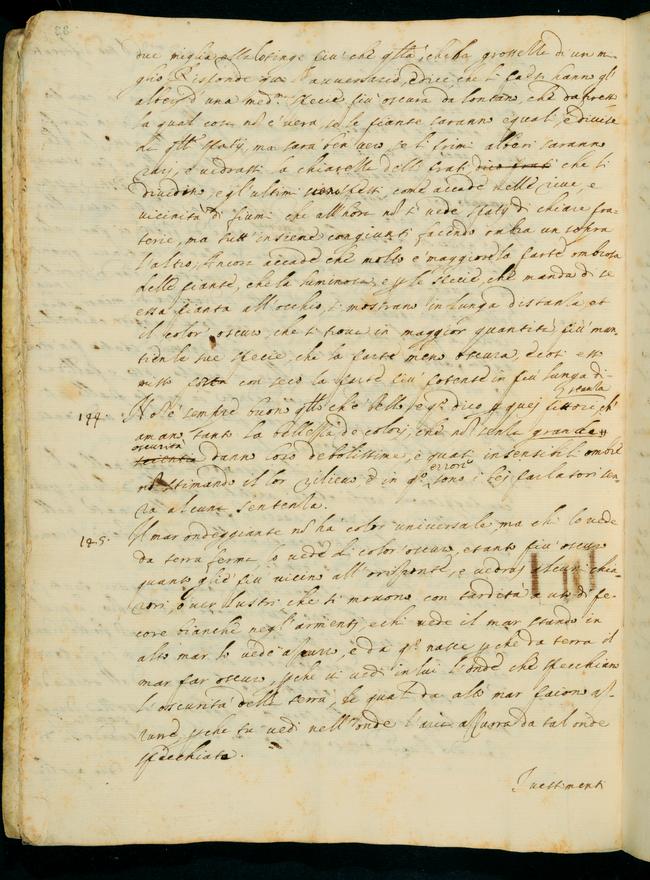 due miglia
glio Risponde l'avversario, e dice, che li Pazzi hanno gl'
alberi d'una med.ma specie più oscura da lontano, che da presso
la qual cosa nō è vera, se le piante saranno equali, e divise
da spatij, ma sarà ben vero se li primi alberi saranno
rari, e vedrassi la chiarezza delli prati che li
dividono, e gl'ultimi spessi come accade nelle rive, e
vicinità di fiumi che all'hora nō si vede spatij di chiare pra-
terie, ma tutt' insieme congiunti facendo ombra un sopra
l'altro, Ancora accade che molto è maggiore la parte ombrosa
delle piante, che la luminosa, e le specie, che manda di se
essa pianta all'occhio, si mostrano in lunga distanza, et
il color oscuro, che si trova in maggior quantità più man-
tien le sue specie, che la parte meno oscura, e così esso
misto porta con seco la parte più potente in più lunga di-
stanza
144. Nō è sempre buono che è bello, e dico quej pittori, ch'
amano tanto la bellezza de colorj, che nō senza gran
oscurità danno loro debolissime, e quasi insensibili ombre
nō stimando il lor rilievo, e in errore sono i bej parlatori sen-
za alcuna sentenza.
145. Il mar ondeggiante nō ha color universale, ma chi lo vede
da terra ferma lo vede di color oscuro, e tanto più oscuro
quanto gl'è più vicino all'orrizonte, e vedraj alcuni chia-
rori, o ver lustri che si movono con tardità a uso di pe-
core bianche negl'armenti, e chi vede il mar stando in
alto mar lo vede azzurro, e da nasce che da terra il
mar par oscuro, che vi vedi in lui l'onde che specchiano
l'oscurità della terra, da alto mar paiono az-
zurre che tu vedi nell'onde l'aria azzurra da tal onde
specchiata.
I vestimenti